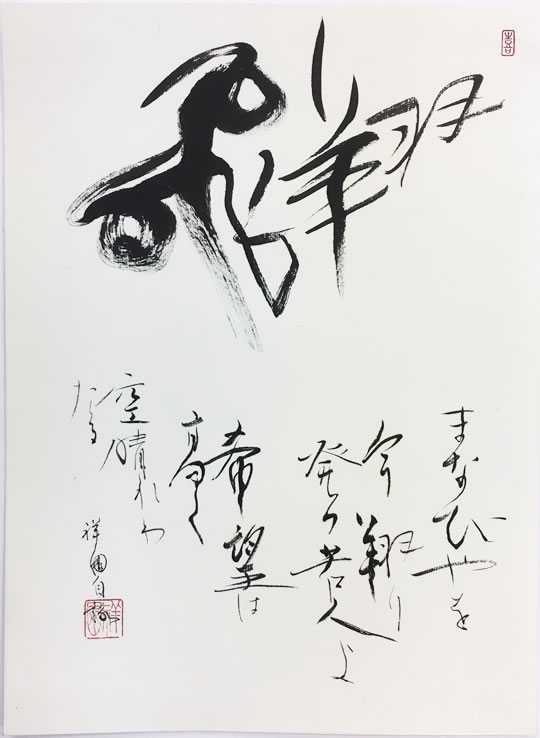 飛翔
まなびやを
今翔り
発つ若人よ
希望は
高く
空晴れわ
たる
祥園自
喜